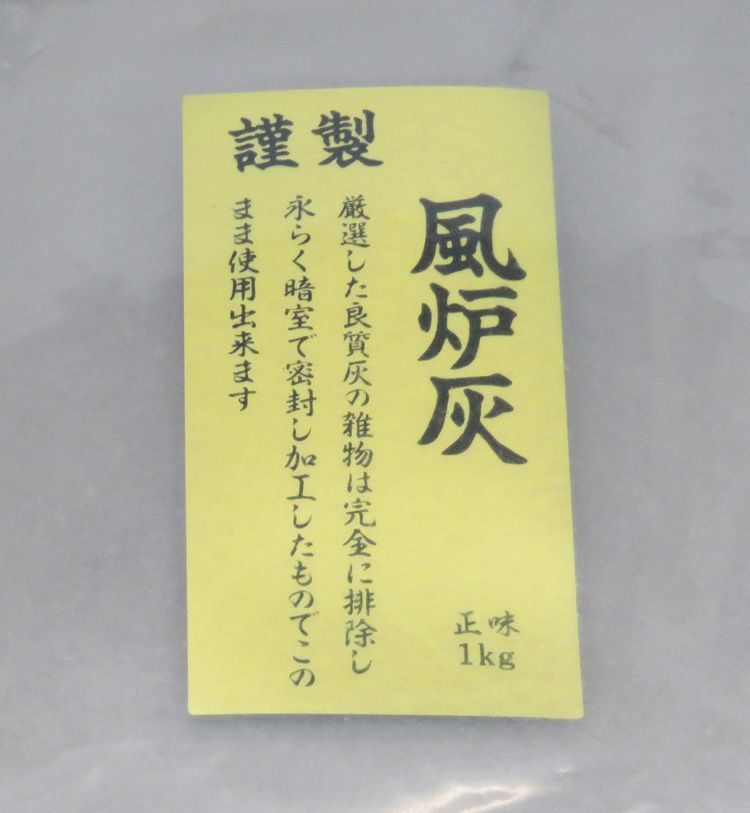 謹製
風炉灰
厳選した良質灰の雑物は完全に排除し
永らく暗室で密封し加工したものでこの
まま使用出来ます
正味
1kg